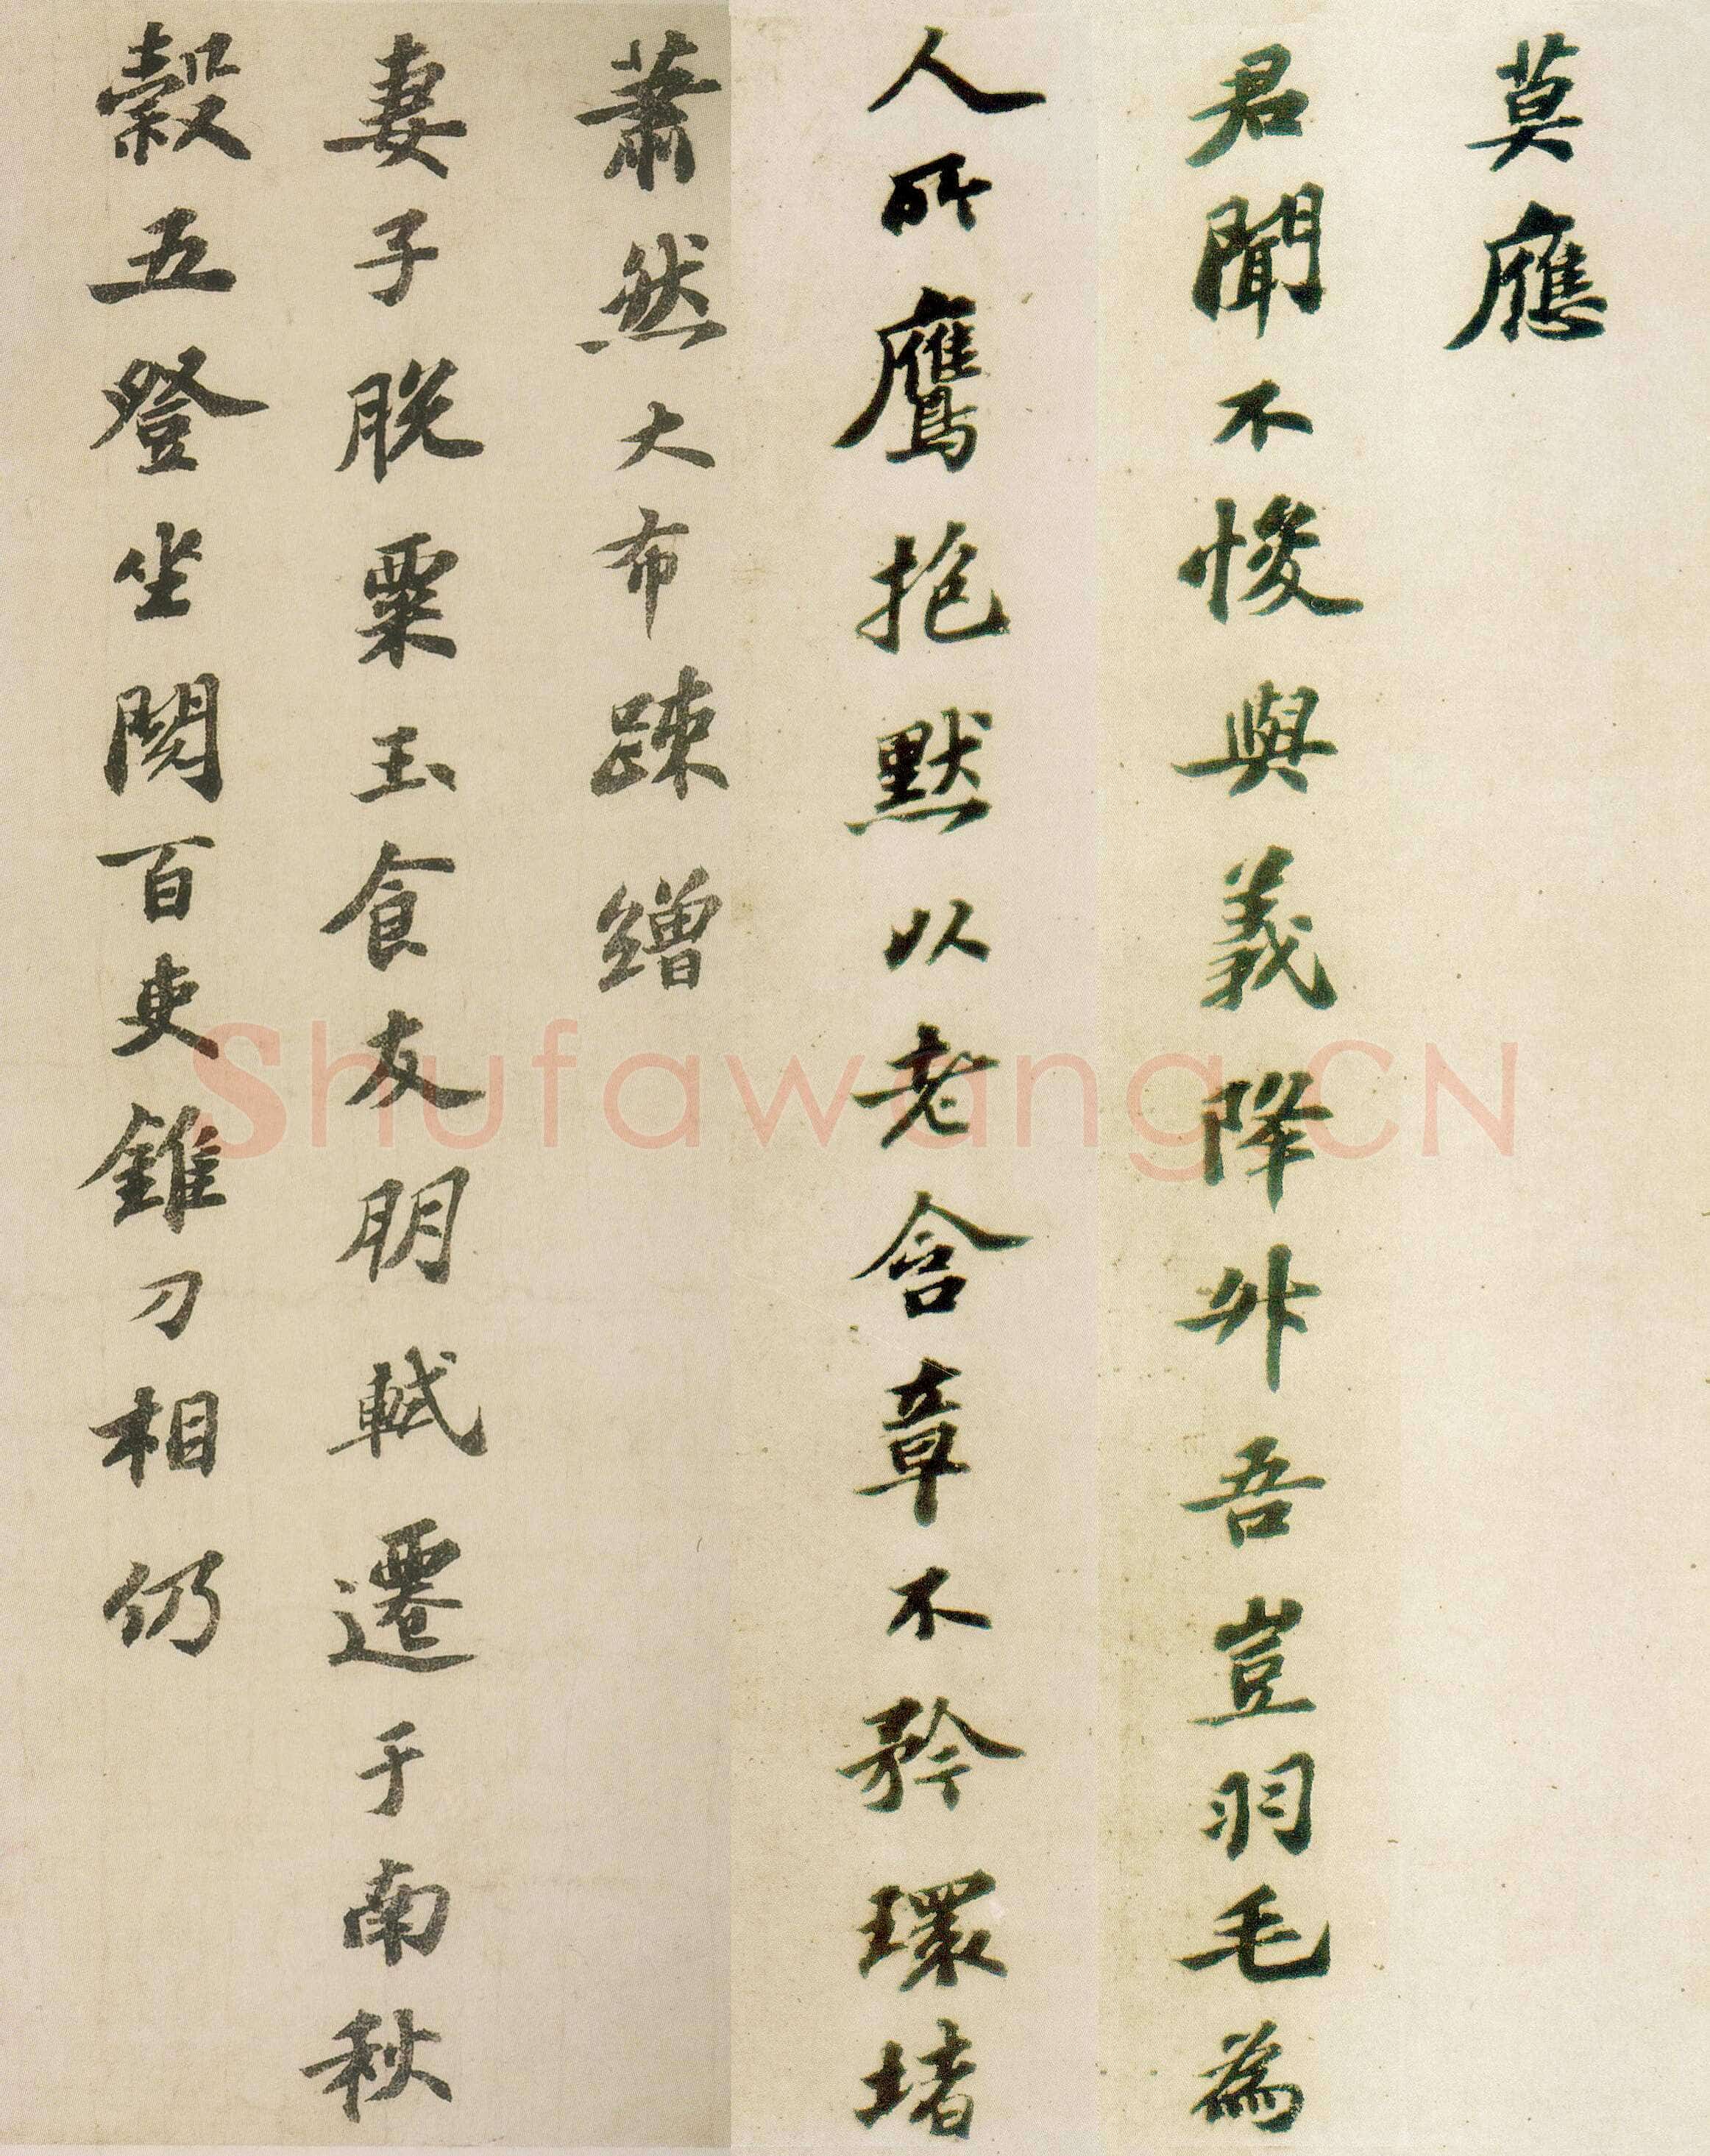 莫應
君聞不悛與義降升吾豈羽毛為
人所鷹抱默以老含章不矜環堵
蕭然大布疎繒
妻子脱粟玉食友朋軾遷于南秋
穀五登坐閱百吏錐刀相仍
Shufawang.CN